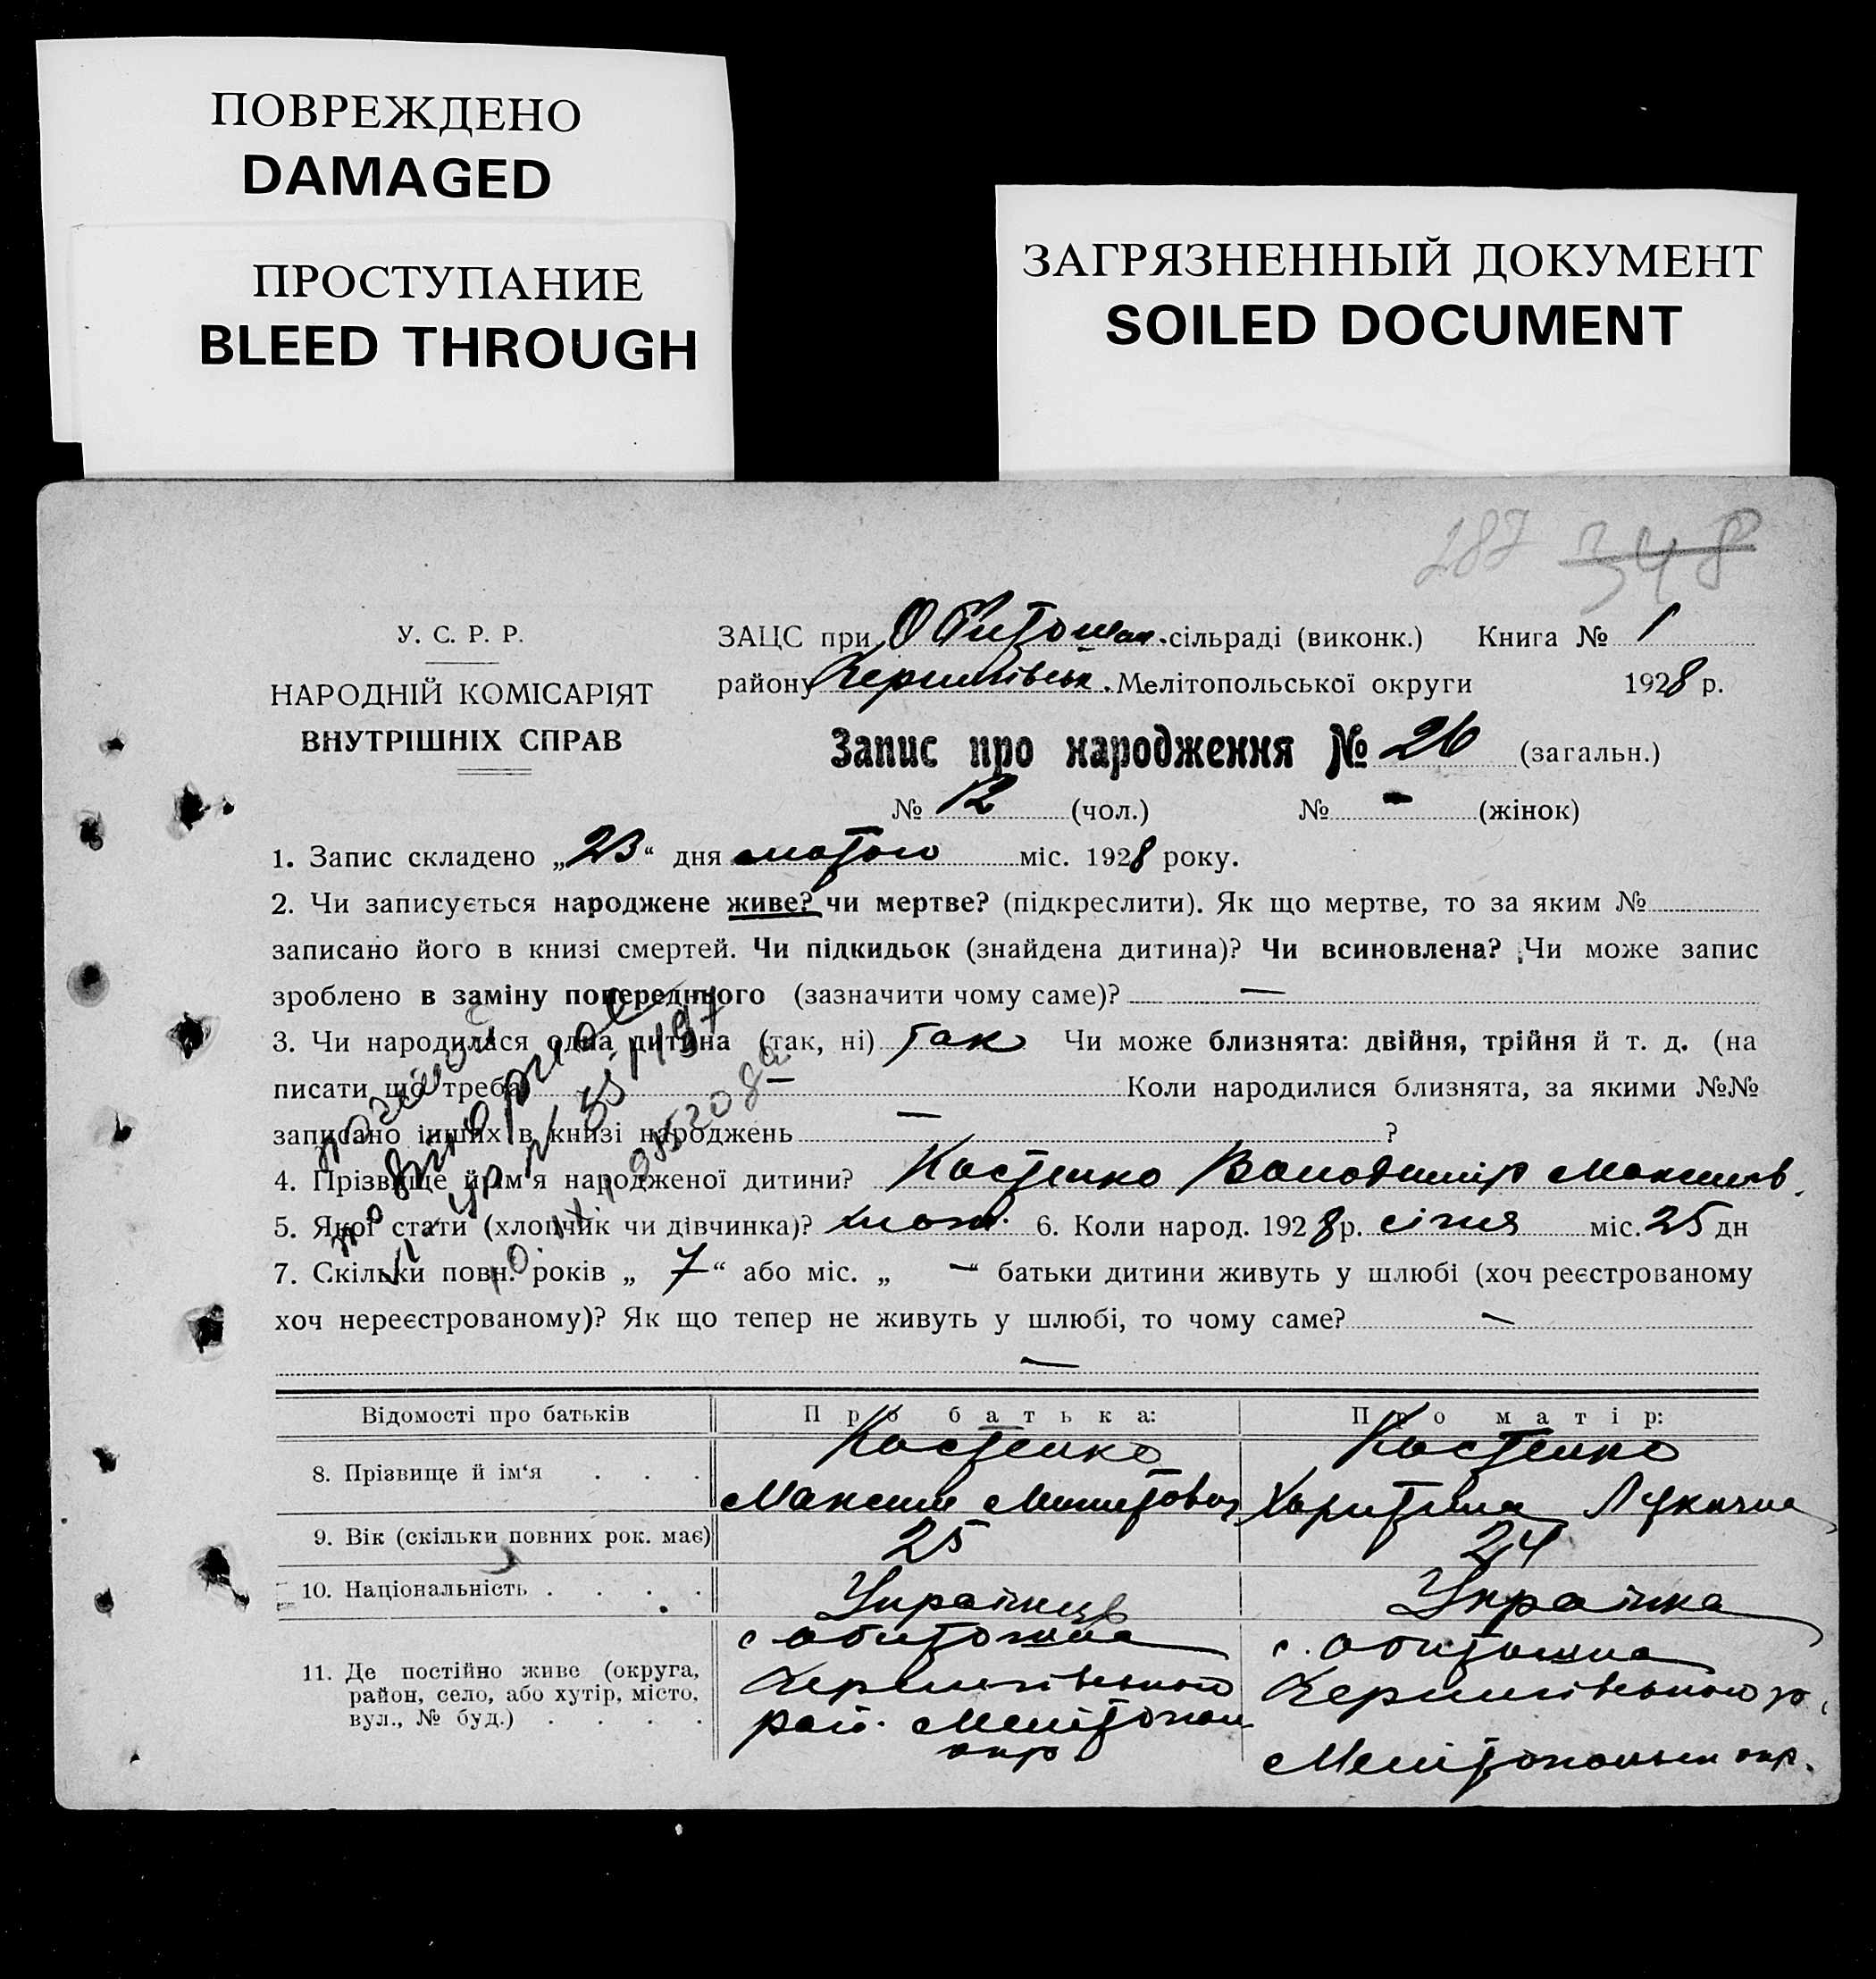 ПОВРЕЖДЕНО
DAMAGED
ПРОСТУПАНИЕ
BLEED THROUGH
ЗАГРЯЗНЕННЫЙ ДОКУМЕНТ
SOILED DOCUMENT
187 348
У. С. Р. Р.
НАРОДНІЙ КОМІСАРІЯТ
ВНУТРІШНІХ СПРАВ
ЗАЦС при Обиточан. сільраді (виконк.) Книга № 1
району Чернигівськ. Мелітопольської округи 1928 р.
Запис про народження № 26 (загальн.)
№ 12 (чол.) № - (жінок)
1. Запис складено „23“ дня лютого міс. 1928 року.
2. Чи записується народжене живе? чи мертве? (підкреслити). Як що мертве, то за яким №
записано його в книзі смертей. Чи підкидьок (знайдена дитина)? Чи всиновлена? Чи може запис
зроблено в заміну попереднього (зазначити чому саме)? —
3. Чи народилася одна дитина (так, ні) так Чи може близнята: двійня, трійня й т. д. (на
писати що треба — Коли народилися близнята, за якими №№
записано інших в книзі народжень — ?
4. Прізвище й ім'я народженої дитини? Костенко Володимир Максимов.
5. Якої стати (хлопчик чи дівчинка)? 6. Коли народ. 1928 р. січня міс. 25 дн
7. Скільки повн. років „ 7 “ або міс. „ — “ батьки дитини живуть у шлюбі (хоч реєстрованому
хоч нереєстрованому)? Як що тепер не живуть у шлюбі, то чому саме? —
—
Відомості про батьків Про батька: Про матір:
8. Прізвище й ім‘я . . . Костенко Костенко
Максим Микитович Харитина Лукична
9. Вік (скільки повних рок. має) 25 24
10. Національність . . . . Українець Українка
11. Де постійно живе (округа, район, село, або хутір, місто, вул., № буд.) . . . .
с Обиточна
Чернигівського
рай. Мелітопол
окр
с. Обиточна
Чернигівського р.
Мелітопольськ окр.